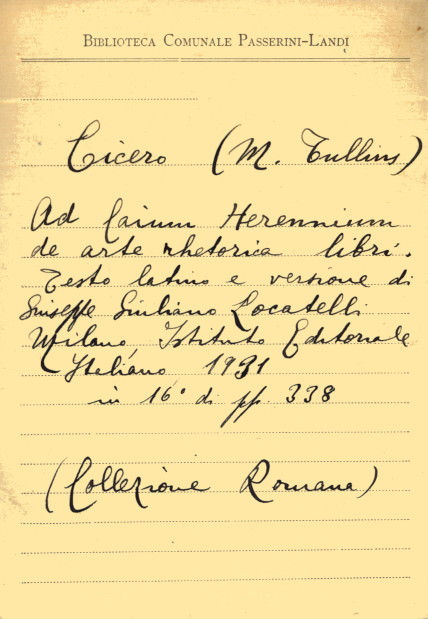 BIBLIOTECA COMUNALE PASSERINI-LANDI
Cicero (M. Tullius)
Ad Caium Herennium
de arte rhetorica libri.
Testo latino e versione di
Giuseppe Giuliano Locatelli
Milano, Istituto Editoriale
Italiano 1931
in 16° di pp. 338
(Collezione Romana)